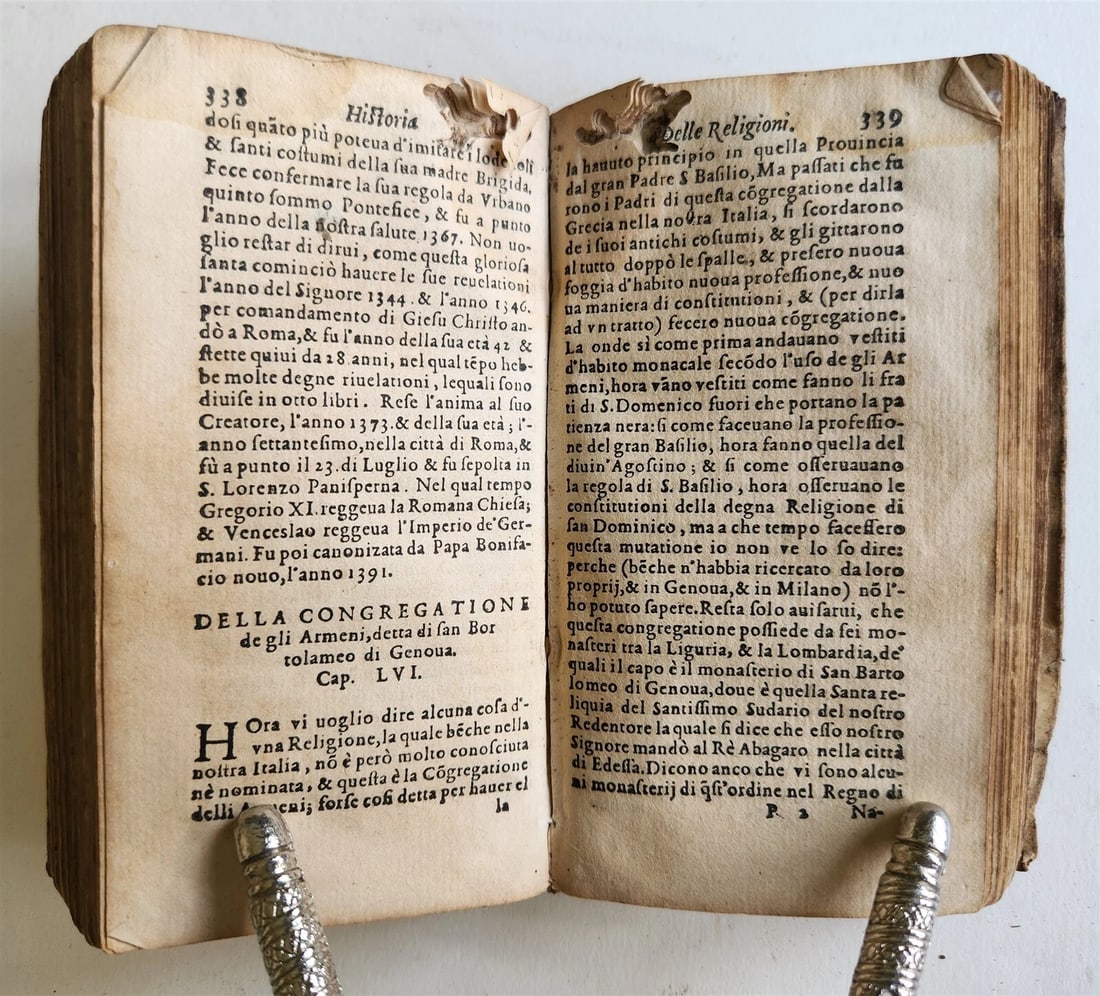 338
Hiſtoria
doſi quãto più poteua d'imitare i
& ſanti coſtumi della ſua madre Brigida.
Fece confermare la ſua regola da Vrbano
quinto ſommo Pontefice, & fu a punto
l'anno della noſtra ſalute 1367. Non uo-
glio reſtar di dirui, come queſta glorioſa
ſanta cominciò hauere le ſue reuelationi
l'anno del Signore 1344. & l'anno 1346.
per comandamento di Gieſu Chriſto an-
dò a Roma,& fu l'anno della ſua età 42 &
ſtette quiui da 28. anni, nel qual tẽpo heb-
be molte degne riuelationi, lequali ſono
diuiſe in otto libri. Reſe l'anima al ſuo
Creatore, l'anno 1373. & della ſua età; l'-
anno ſettanteſimo,nella città di Roma,&
fù a punto il 23. di Luglio & fu ſepolta in
S. Lorenzo Paniſperna. Nel qual tempo
Gregorio XI. reggeua la Romana Chieſa;
& Venceslao reggeua l'Imperio de'Ger-
mani. Fu poi canonizata da Papa Bonifa-
cio nouo,l'anno 1391.
DELLA CONGREGATIONE
de gli Armeni,detta di ſan Bor
tolameo di Genoua.
Cap. LVI.
HOra vi uoglio dire alcuna coſa d'-
vna Religione,la quale bẽche nella
noſtra Italia, nõ è però molto conoſciuta
nè nominata, & queſta è la Cõgregatione
delli forſe coſi detta per hauer el
la
Delle Religioni.
339
la hauuto principio in quella Prouincia
dal gran Padre S Baſilio,Ma paſſati che fu
rono i Padri di queſta cõgregatione dalla
Grecia nella noſtra Italia, ſi ſcordarono
de i ſuoi antichi coſtumi, & gli gittarono
al tutto doppò le ſpalle, & preſero nuoua
foggia d'habito nuoua profeſſione,& nuo
ua maniera di conſtitutioni, & (per dirla
ad vn tratto) fecero nuoua cõgregatione.
La onde sì come prima andauano veſtiti
d'habito monacale ſecõdo l'uſo de gli Ar
meni,hora vãno veſtiti come fanno li fra
ti di S. Domenico fuori che portano la pa
tienza nera: ſi come faceuano la profeſſio-
ne del gran Baſilio, hora fanno quella del
diuin'Agoſtino; & ſi come oſſeruauano
la regola di S. Baſilio, hora oſſeruano le
conſtitutioni della degna Religione di
ſan Dominico, ma a che tempo faceſſero
queſta mutatione io non ve lo ſo dire:
perche (bẽche n'habbia ricercato da loro
proprij,& in Genoua,& in Milano) nõ l'-
ho potuto ſapere.Reſta ſolo auiſarui, che
queſta congregatione poſſiede da ſei mo-
naſteri tra la Liguria, & la Lombardia,de'
quali il capo è il monaſterio di San Barto
lomeo di Genoua,doue è quella Santa re-
liquia del Santiſſimo Sudario del noſtro
Redentore la quale ſi dice che eſſo noſtro
Signore mandò al Rè Abagaro nella città
di Edeſſa.Dicono anco che vi ſono alcu-
ni monaſterij di q̃ſt'ordine nel Regno di
P 2 Na-